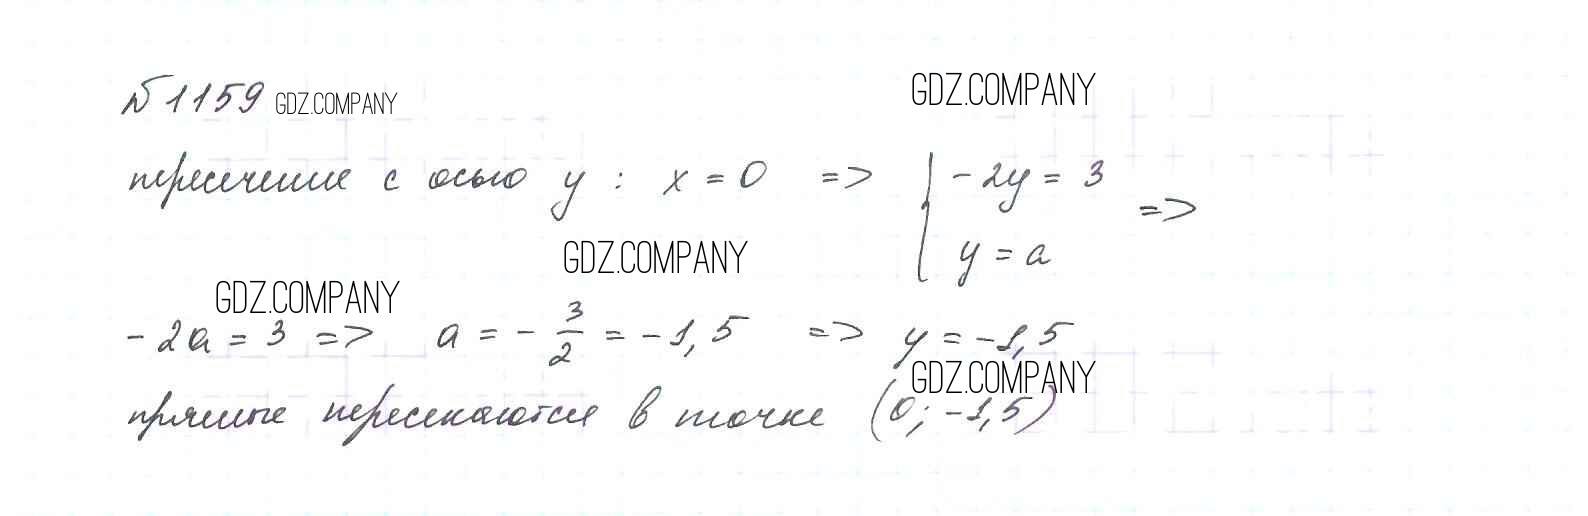 №1159 GDZ.COMPANY GDZ.COMPANY
пересечение с осью y : x = 0 => { -2y = 3
y = a =>
GDZ.COMPANY
GDZ.COMPANY
-2a = 3 => a = - 3/2 = -1,5 => y = -1,5
GDZ.COMPANY
прямые пересекаются в точке (0; -1,5)